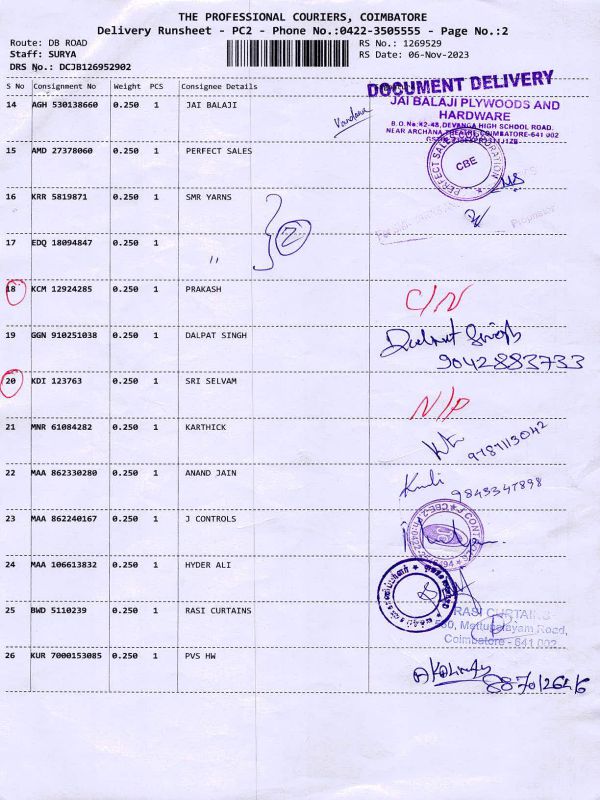 THE PROFESSIONAL COURIERS, COIMBATORE
Delivery Runsheet - PC2 - Phone No.:0422-3505555 - Page No.:2
Route: DB ROAD RS No.: 1269529
Staff: SURYA RS Date: 06-Nov-2023
DRS No.: DCJB126952902
S No Consignment No Weight PCS Consignee Details
DOCUMENT DELIVERY
14 AGH 530138660 0.250 1 JAI BALAJI
Vandana
JAI BALAJI PLYWOODS AND
HARDWARE
B.O.No:42-48, DEVANGA HIGH SCHOOL ROAD.
NEAR ARCHANA THEATRE, COIMBATORE-641 002
15 AMD 27378060 0.250 1 PERFECT SALES
PERFECT SALES CORPORATION
CBE
16 KRR 5819871 0.250 1 SMR YARNS
2
Proprietor
17 EDQ 18094847 0.250 1 "
18 KCM 12924285 0.250 1 PRAKASH
C/N
19 GGN 910251038 0.250 1 DALPAT SINGH
Dalpat Singh
9042883733
20 KDI 123763 0.250 1 SRI SELVAM
N/P
21 MNR 61084282 0.250 1 KARTHICK
9787113042
22 MAA 862330280 0.250 1 ANAND JAIN
9843347898
23 MAA 862240167 0.250 1 J CONTROLS
24 MAA 106613832 0.250 1 HYDER ALI
25 BWD 5110239 0.250 1 RASI CURTAINS
RASI CURTAINS
Mettupalayam Road,
Coimbatore - 641 002
26 KUR 7000153085 0.250 1 PVS HW